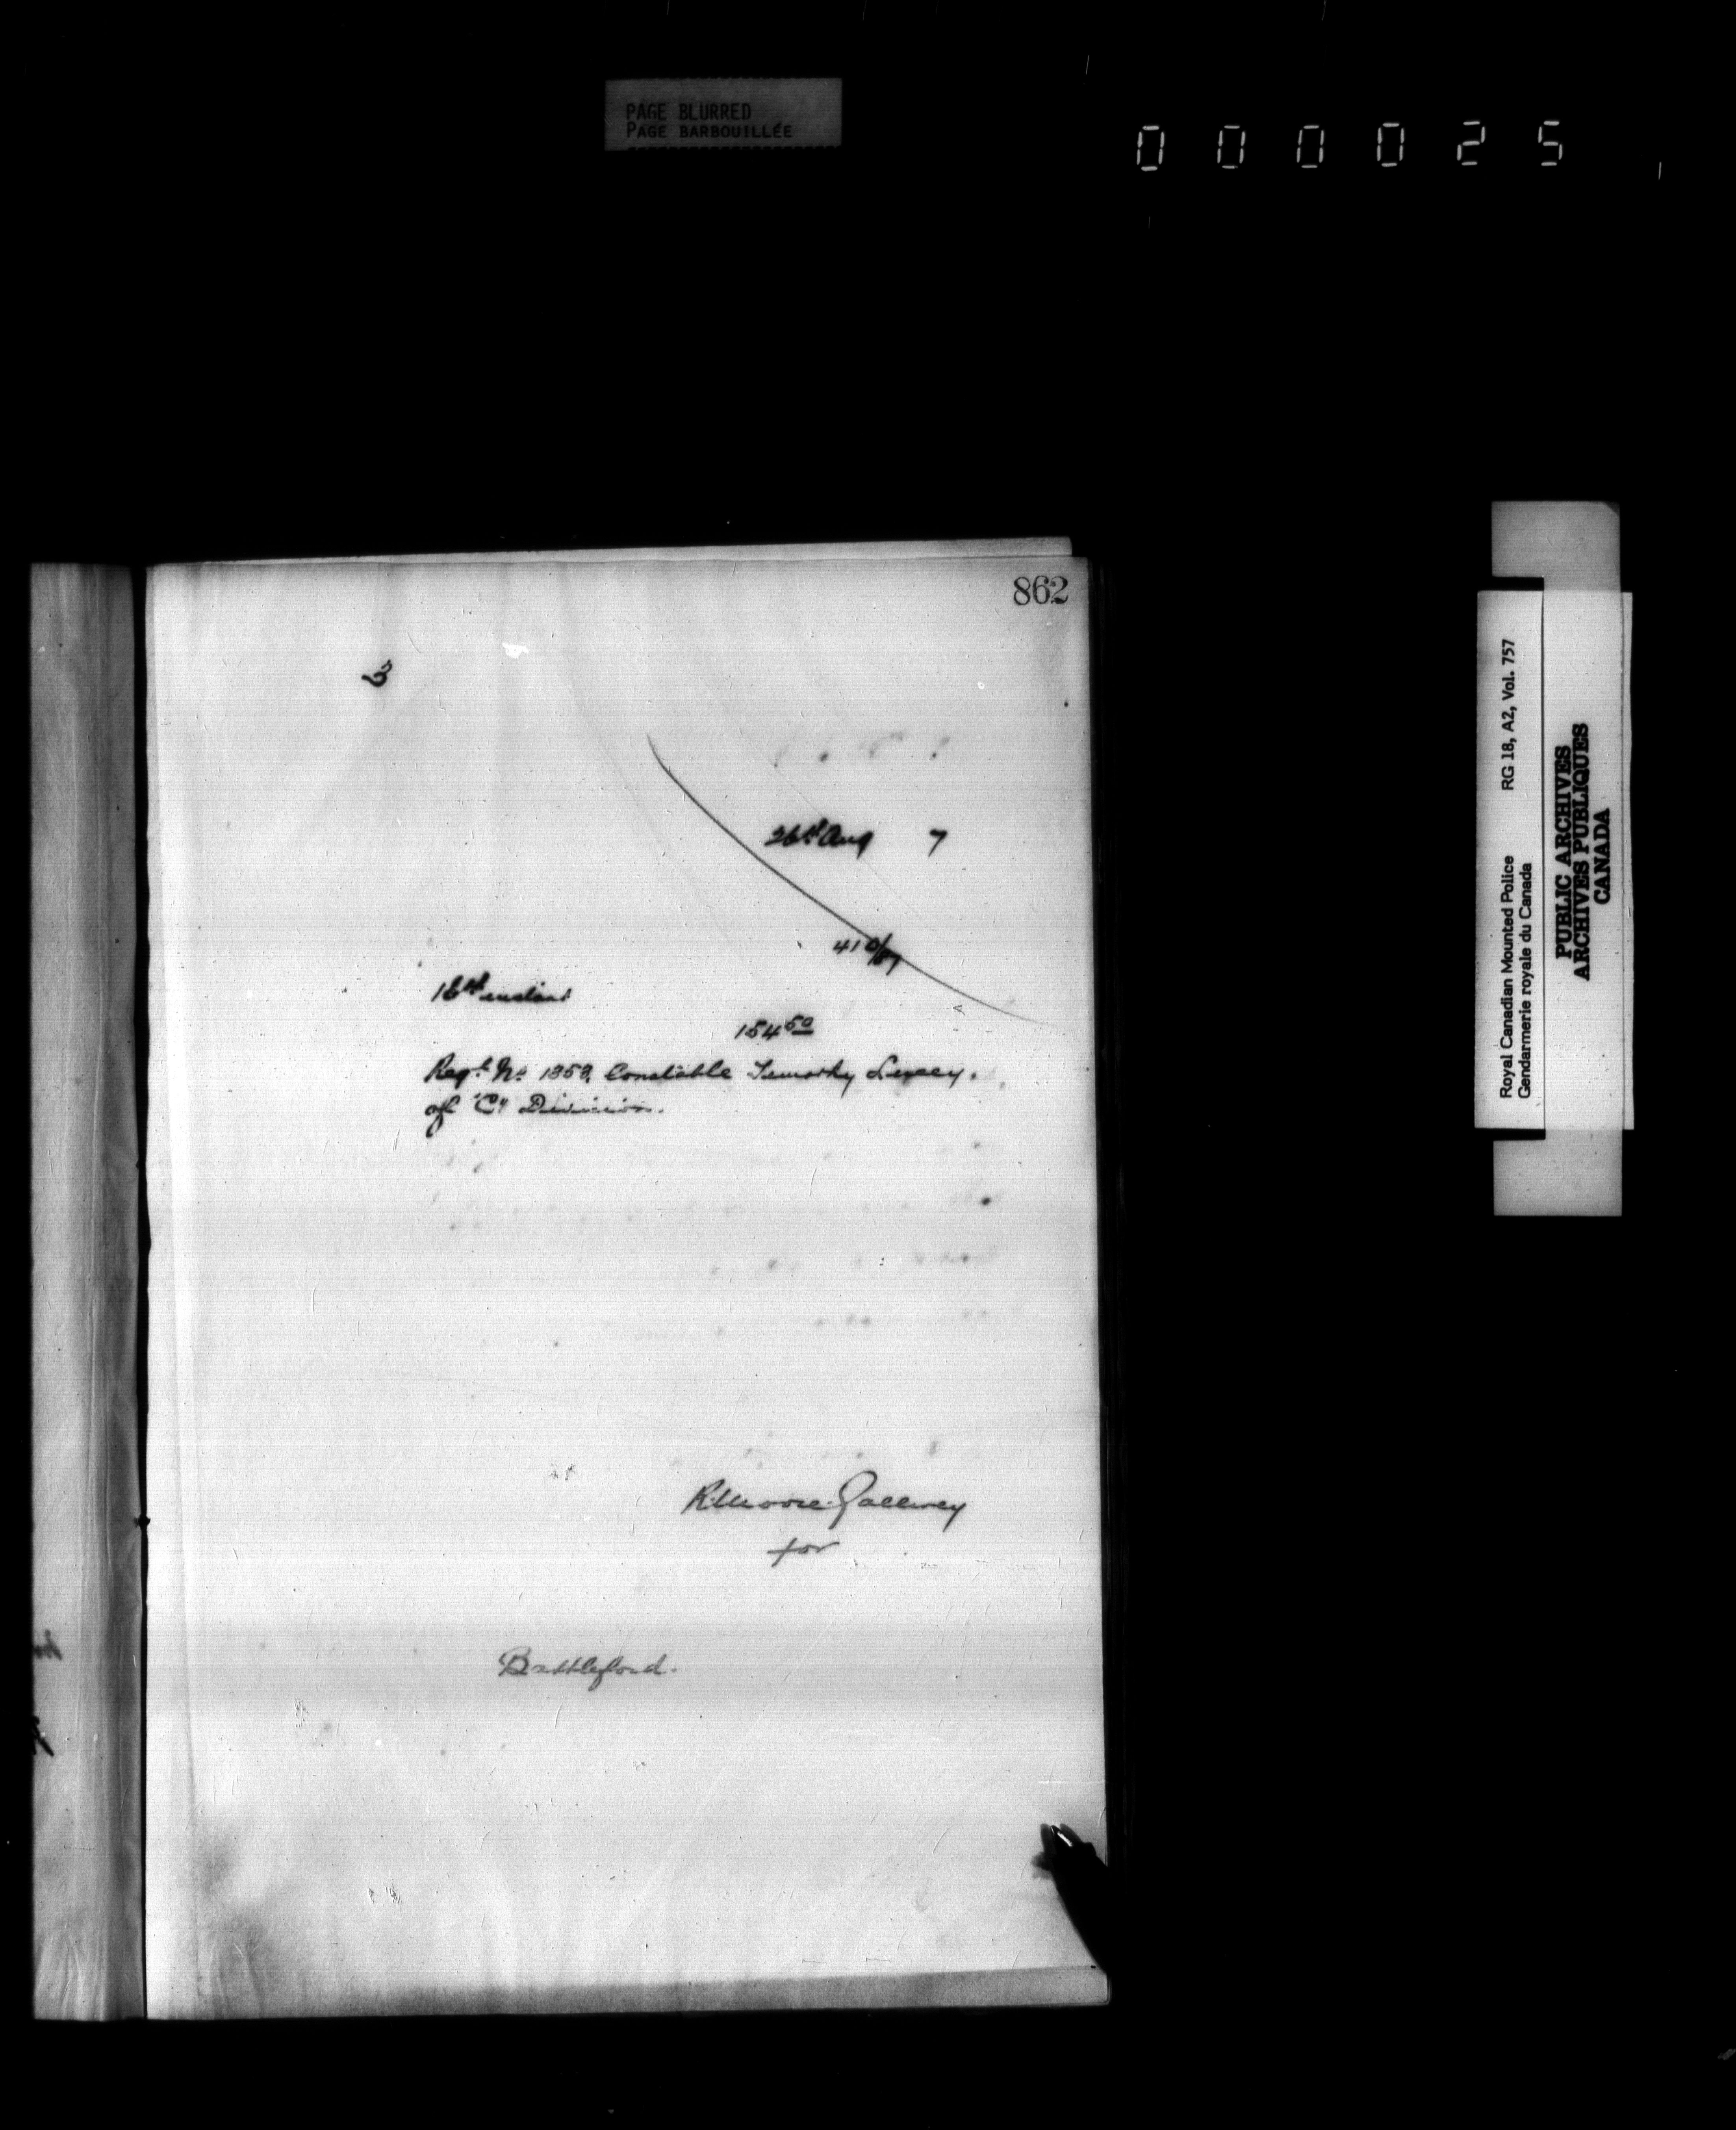 PAGE BLURRED
PAGE BARBOUILLÉE
000025
862
3
26th Aug 7
410/87
18th instant
154 50
Regtl No 1353, Constable Timothy
of "C" Division.
R. Moore. Gallwey
for
Battleford.
Royal Canadian Mounted Police RG 18, A2, Vol. 757
Gendarmerie royale du Canada
PUBLIC ARCHIVES
ARCHIVES PUBLIQUES
CANADA